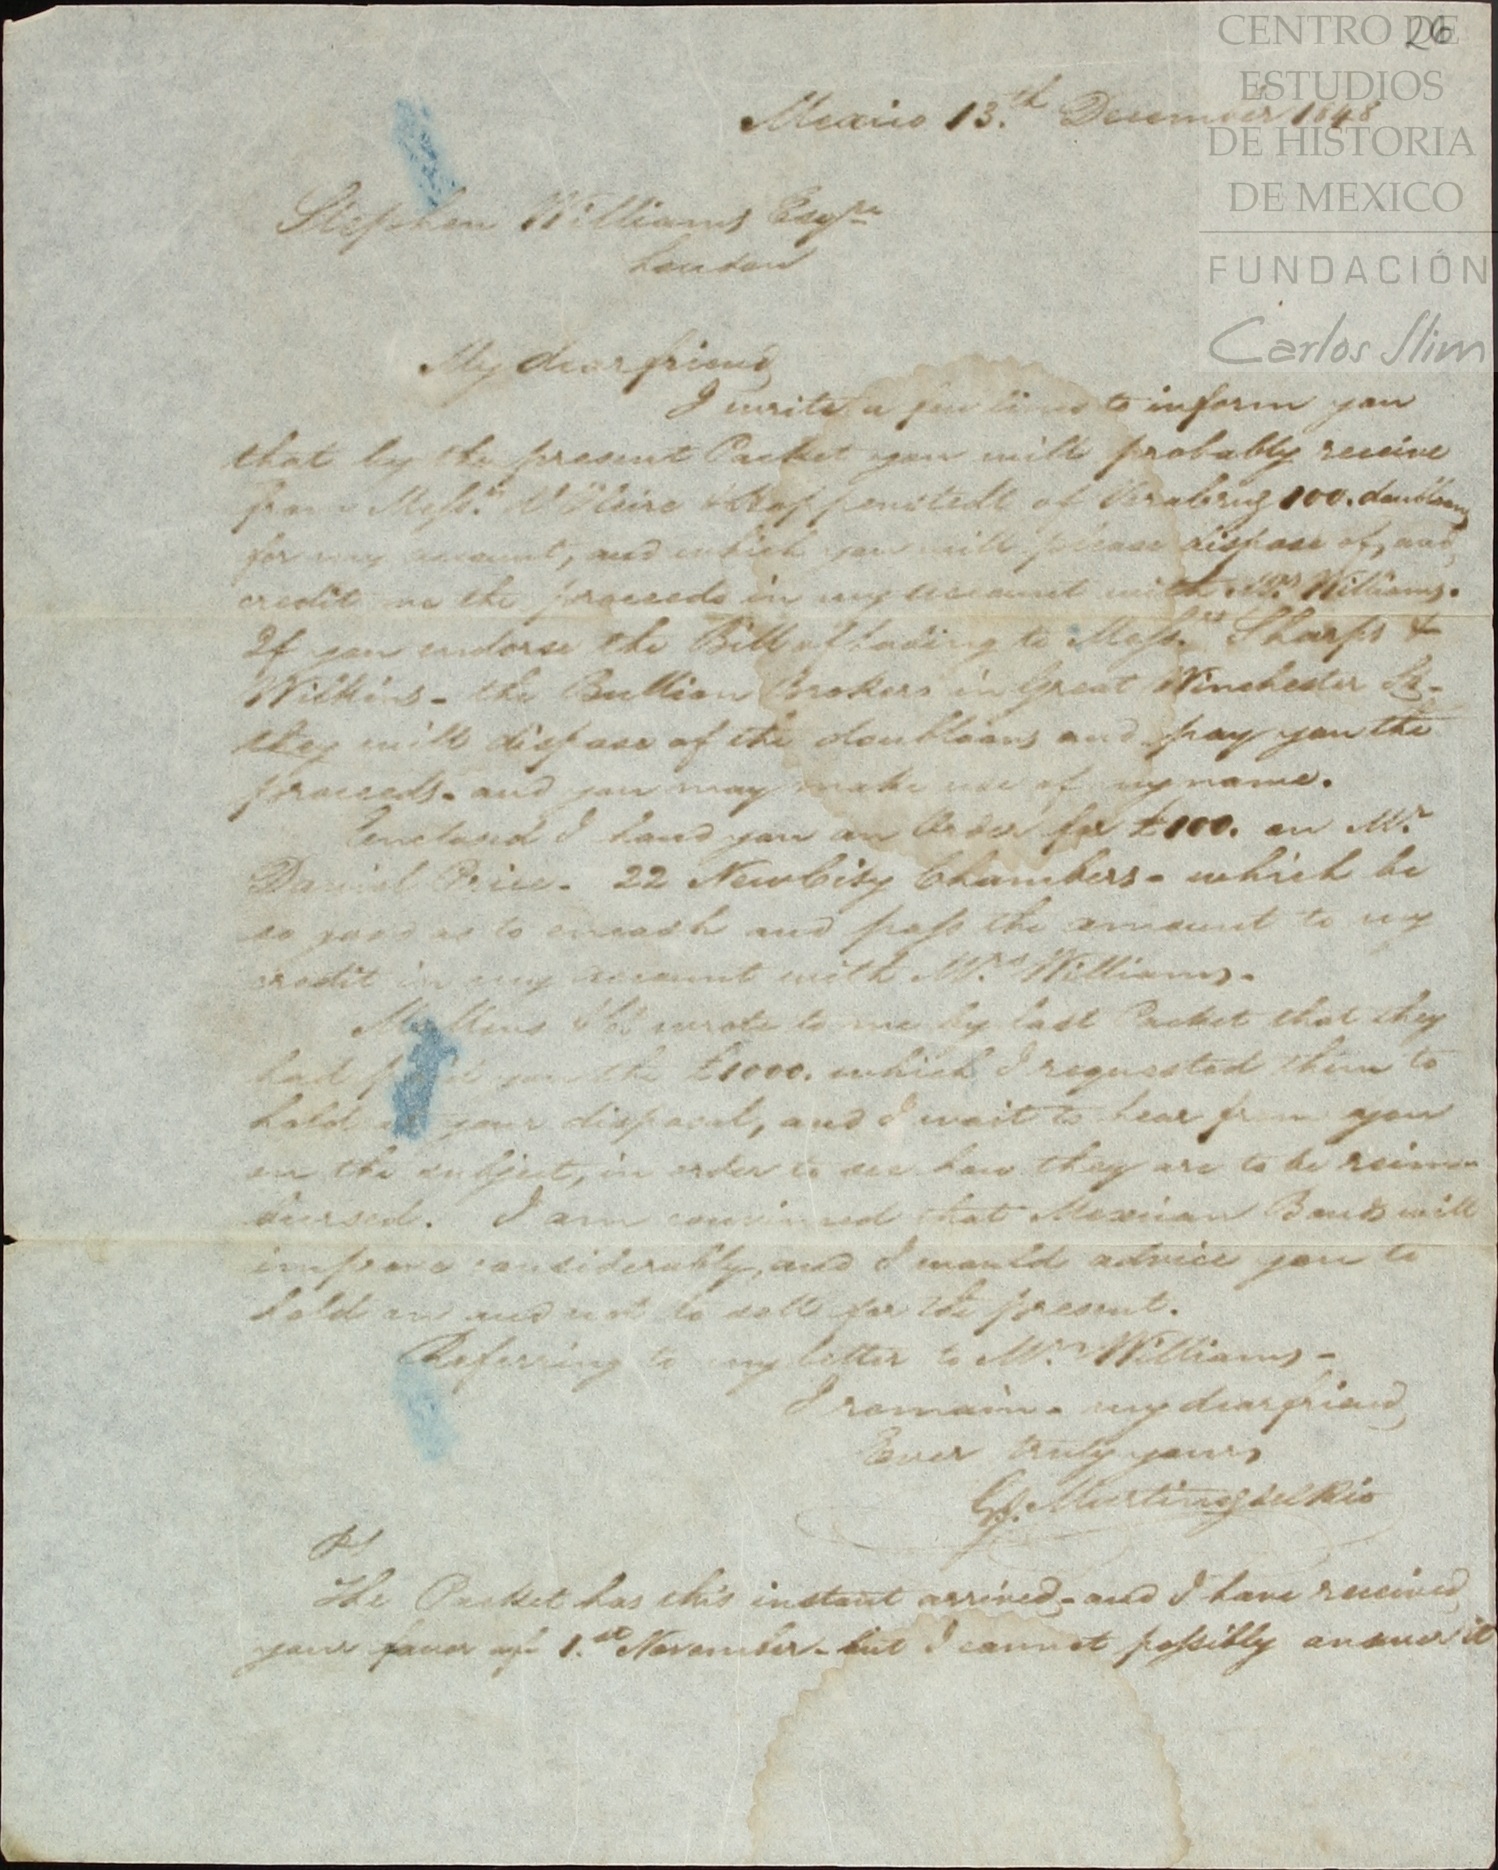 26
CENTRO DE
ESTUDIOS
DE HISTORIA
DE MEXICO
FUNDACIÓN
Carlos Slim
Mexico 13.th December 1848
Stephen Williams Esqre
London
My dear friend,
I write a few lines to inform you
that by the present Packet you will probably receive
from Messrs. of 100. doubloons
for my account, and which you will please dispose of, and
credit me the proceeds in my account with Mrs. Williams.
If you endorse the Bill of lading to Messrs. Sharps &
Wilkins - the Bullion Brokers in Great Winchester St.
they will dispose of the doubloons and pay you the
proceeds - and you may make use of my name.
Enclosed I hand you an Order for £100. on Mr.
Daniel Price - 22 New City Chambers - which be
so good as to encash and pass the amount to my
credit in my account with Mrs. Williams -
wrote to me by last Packet that they
had paid you the £1000. which I requested them to
hold at your disposal, and I wait to hear from you
on the subject, in order to see how they are to be reim-
bursed. I am convinced that Mexican Bonds will
improve considerably, and I would advice you to
hold on and not to sell for the present.
Referring to my letter to Mrs. Williams -
I remain - my dear friend,
Ever truly yours,
G. J. Martinez del Rio
PS
The Packet has this instant arrived - and I have received
your favor of 1.st November - but I cannot possibly answer it